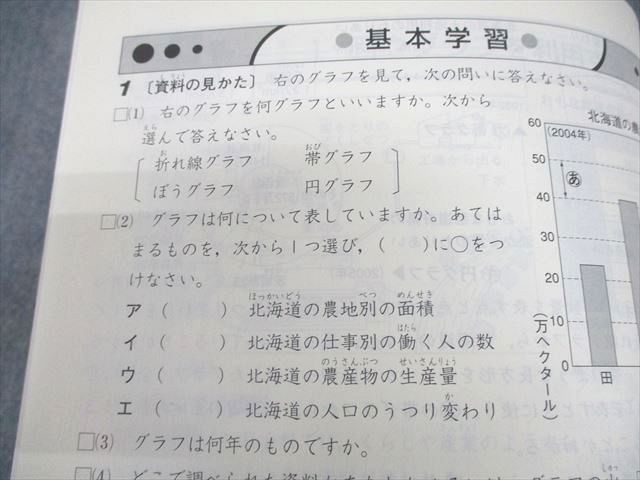 基本学習
1 〔資料の見かた〕 右のグラフを見て，次の問いに答えなさい。
□(1) 右のグラフを何グラフといいますか。次から
選んで答えなさい。
折れ線グラフ 帯グラフ
ぼうグラフ 円グラフ
□(2) グラフは何について表していますか。あては
まるものを，次から1つ選び，( )に○をつ
けなさい。
ア ( ) 北海道の農地別の面積
イ ( ) 北海道の仕事別の働く人の数
ウ ( ) 北海道の農産物の生産量
エ ( ) 北海道の人口のうつり変わり
□(3) グラフは何年のものですか。
□(4)
北海道の
(2004年)
60
50
あ
40
30
20
10
0
(万ヘクタール)
田